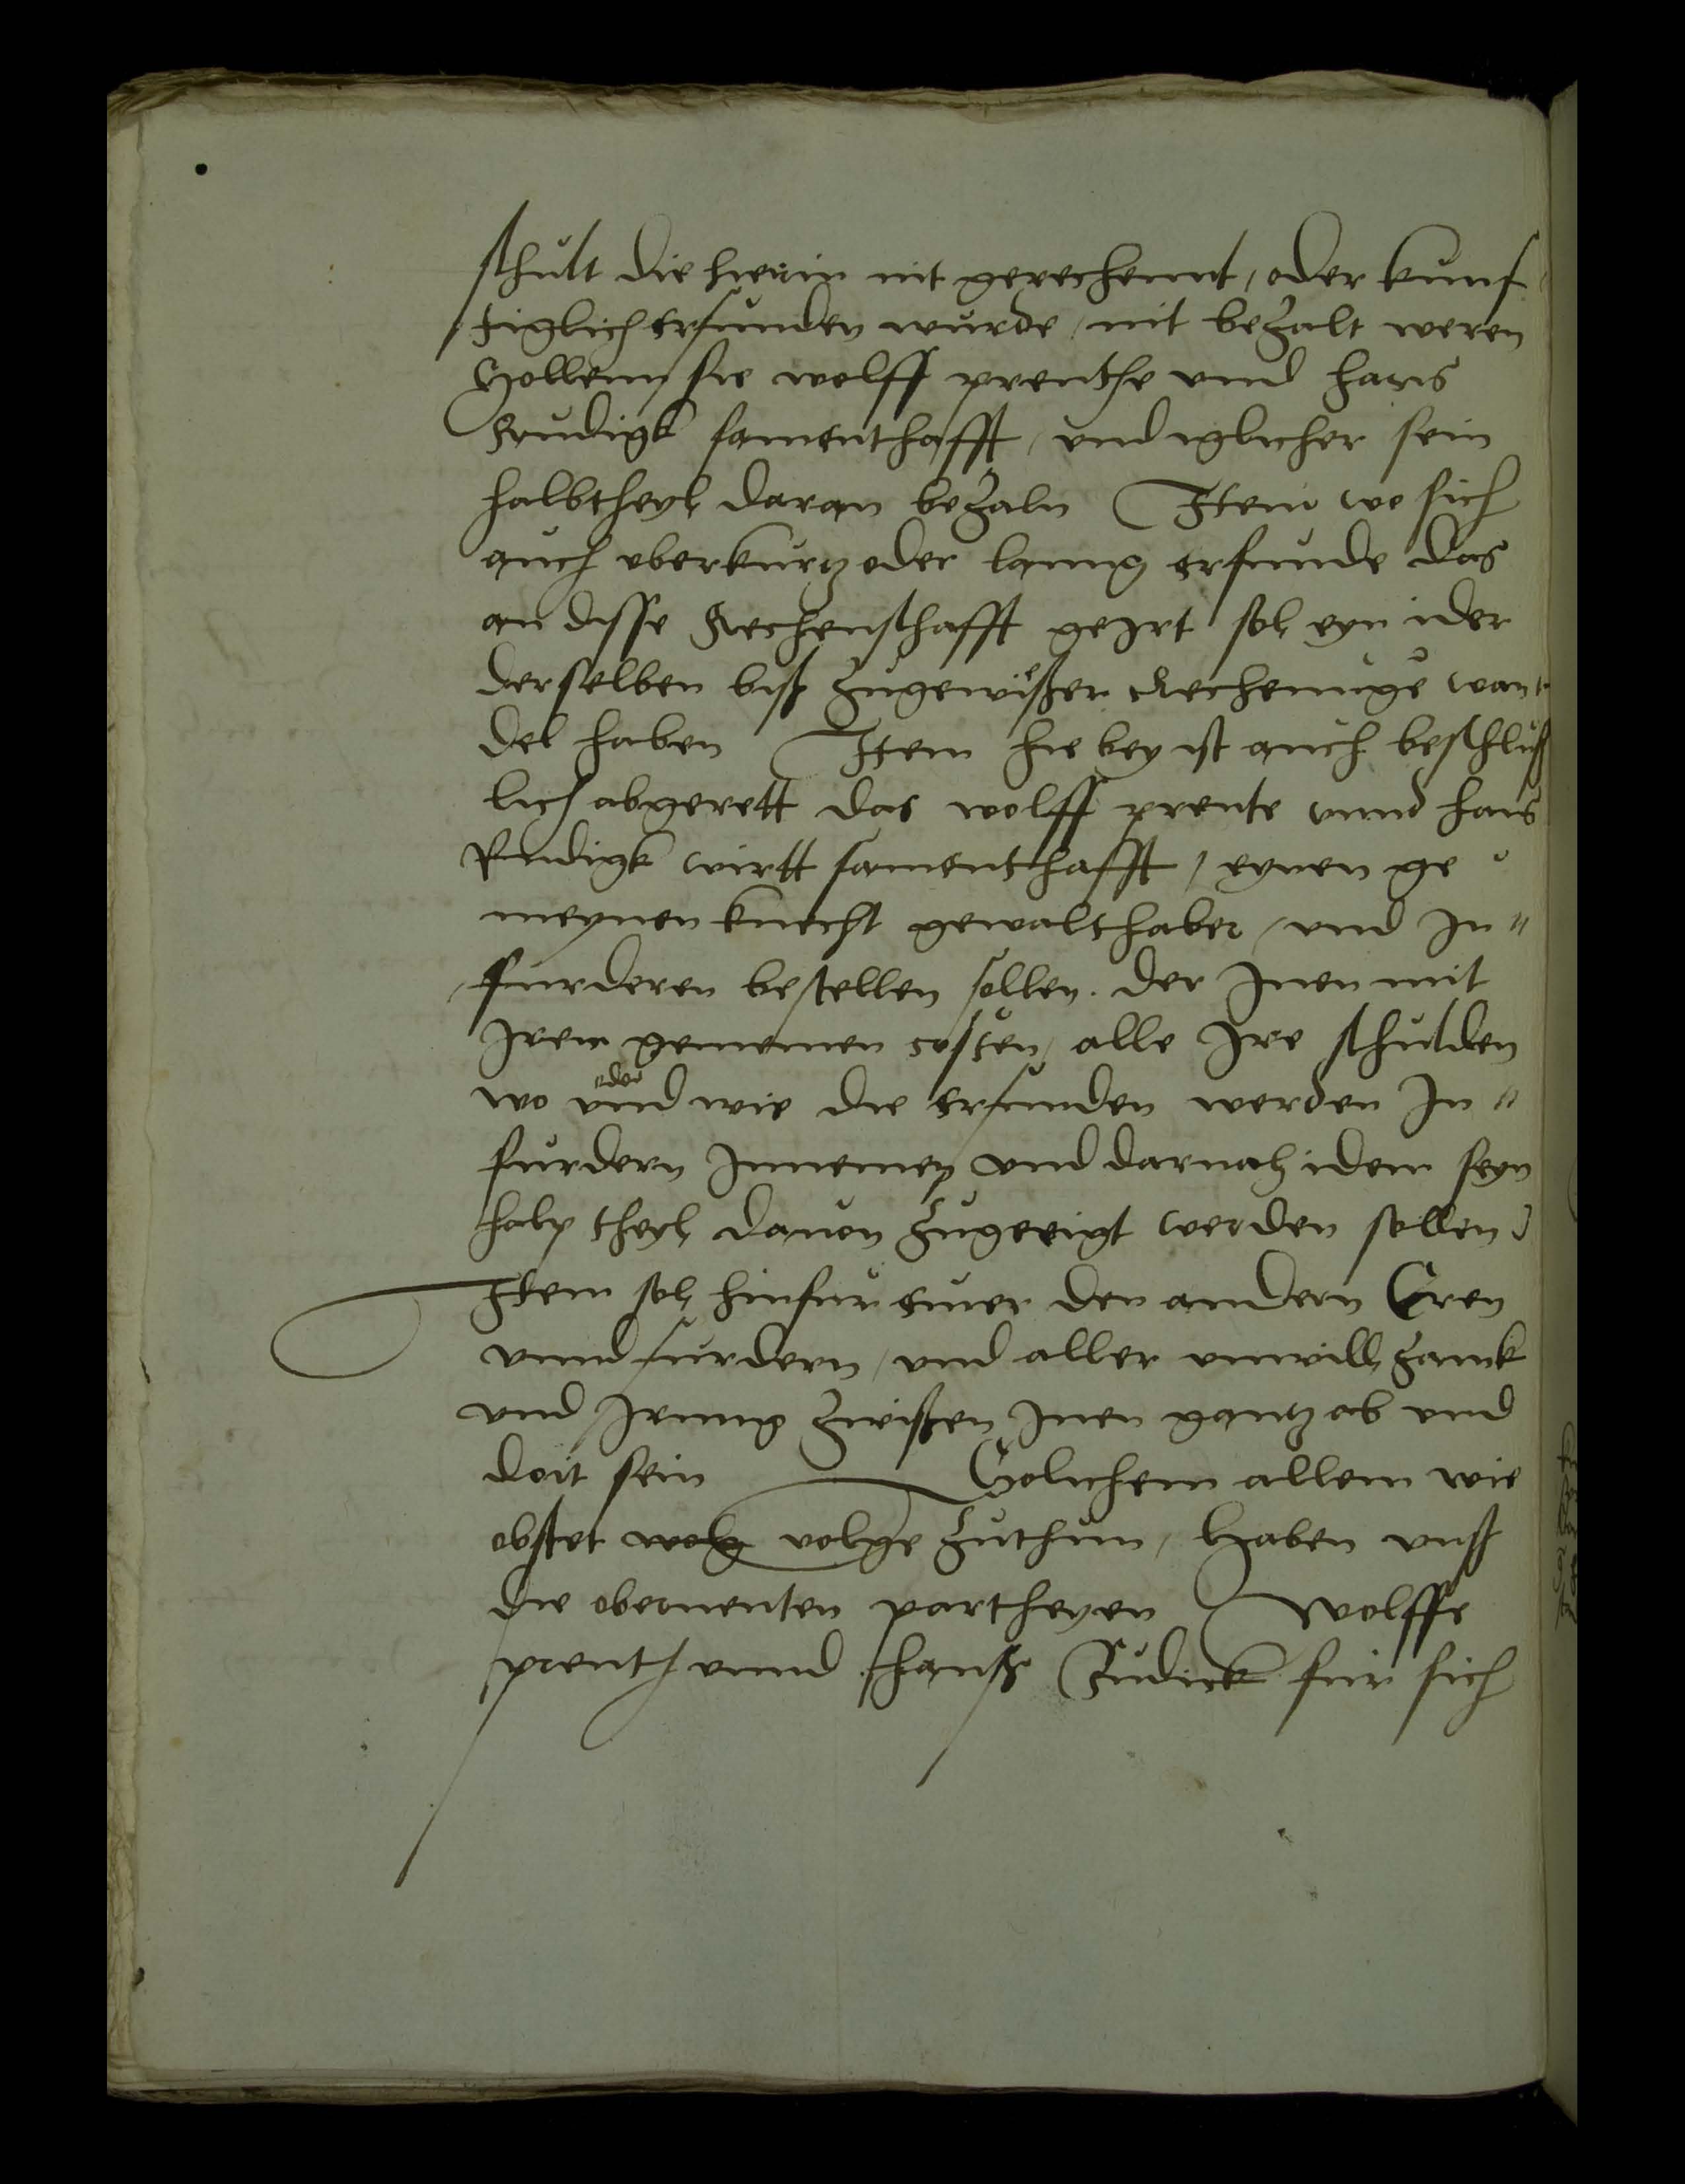 schult die hierin nit gerechennt, oder kunf
tiglich erfunden wurde, nit bezalt weren
Sollenn sie wolff prenthe und Hans
Rrudigk samenthafft, und iglicher sein
halbtheyl daran bezaln Item wo sich
auch uberkurtz oder lanng erfunde das
an disse Rechenschafft geirt sol eyn ider
derselben biß zugewißer Rechenunge wan
del haben Item hie bey ist auch beschluß
lich abgerett das wolff prente unnd Hans
Rudigk wirtt samentthafft, eynen ge
meynen knecht gewalthaber, und In"
furderen bestellen sollen. der Inen mit
Irem gemeinen costen, alle Ire schulden
wo und oder wie die erfunden werden In"
furdern Innemen und darnach idem seyn
halp theyl dauon zugeeigt werden sollen
Item sol hinfur einer den andern Eren
unnd furdern, und aller unwill zannk
und Irnung zwischen Inen gantz ab und
doit sein Solichem allem wie
obstet volge zuthun, Haben unß
die obernenten partheyen Wolffe
prenth unnd Hanß Rudick fur sich